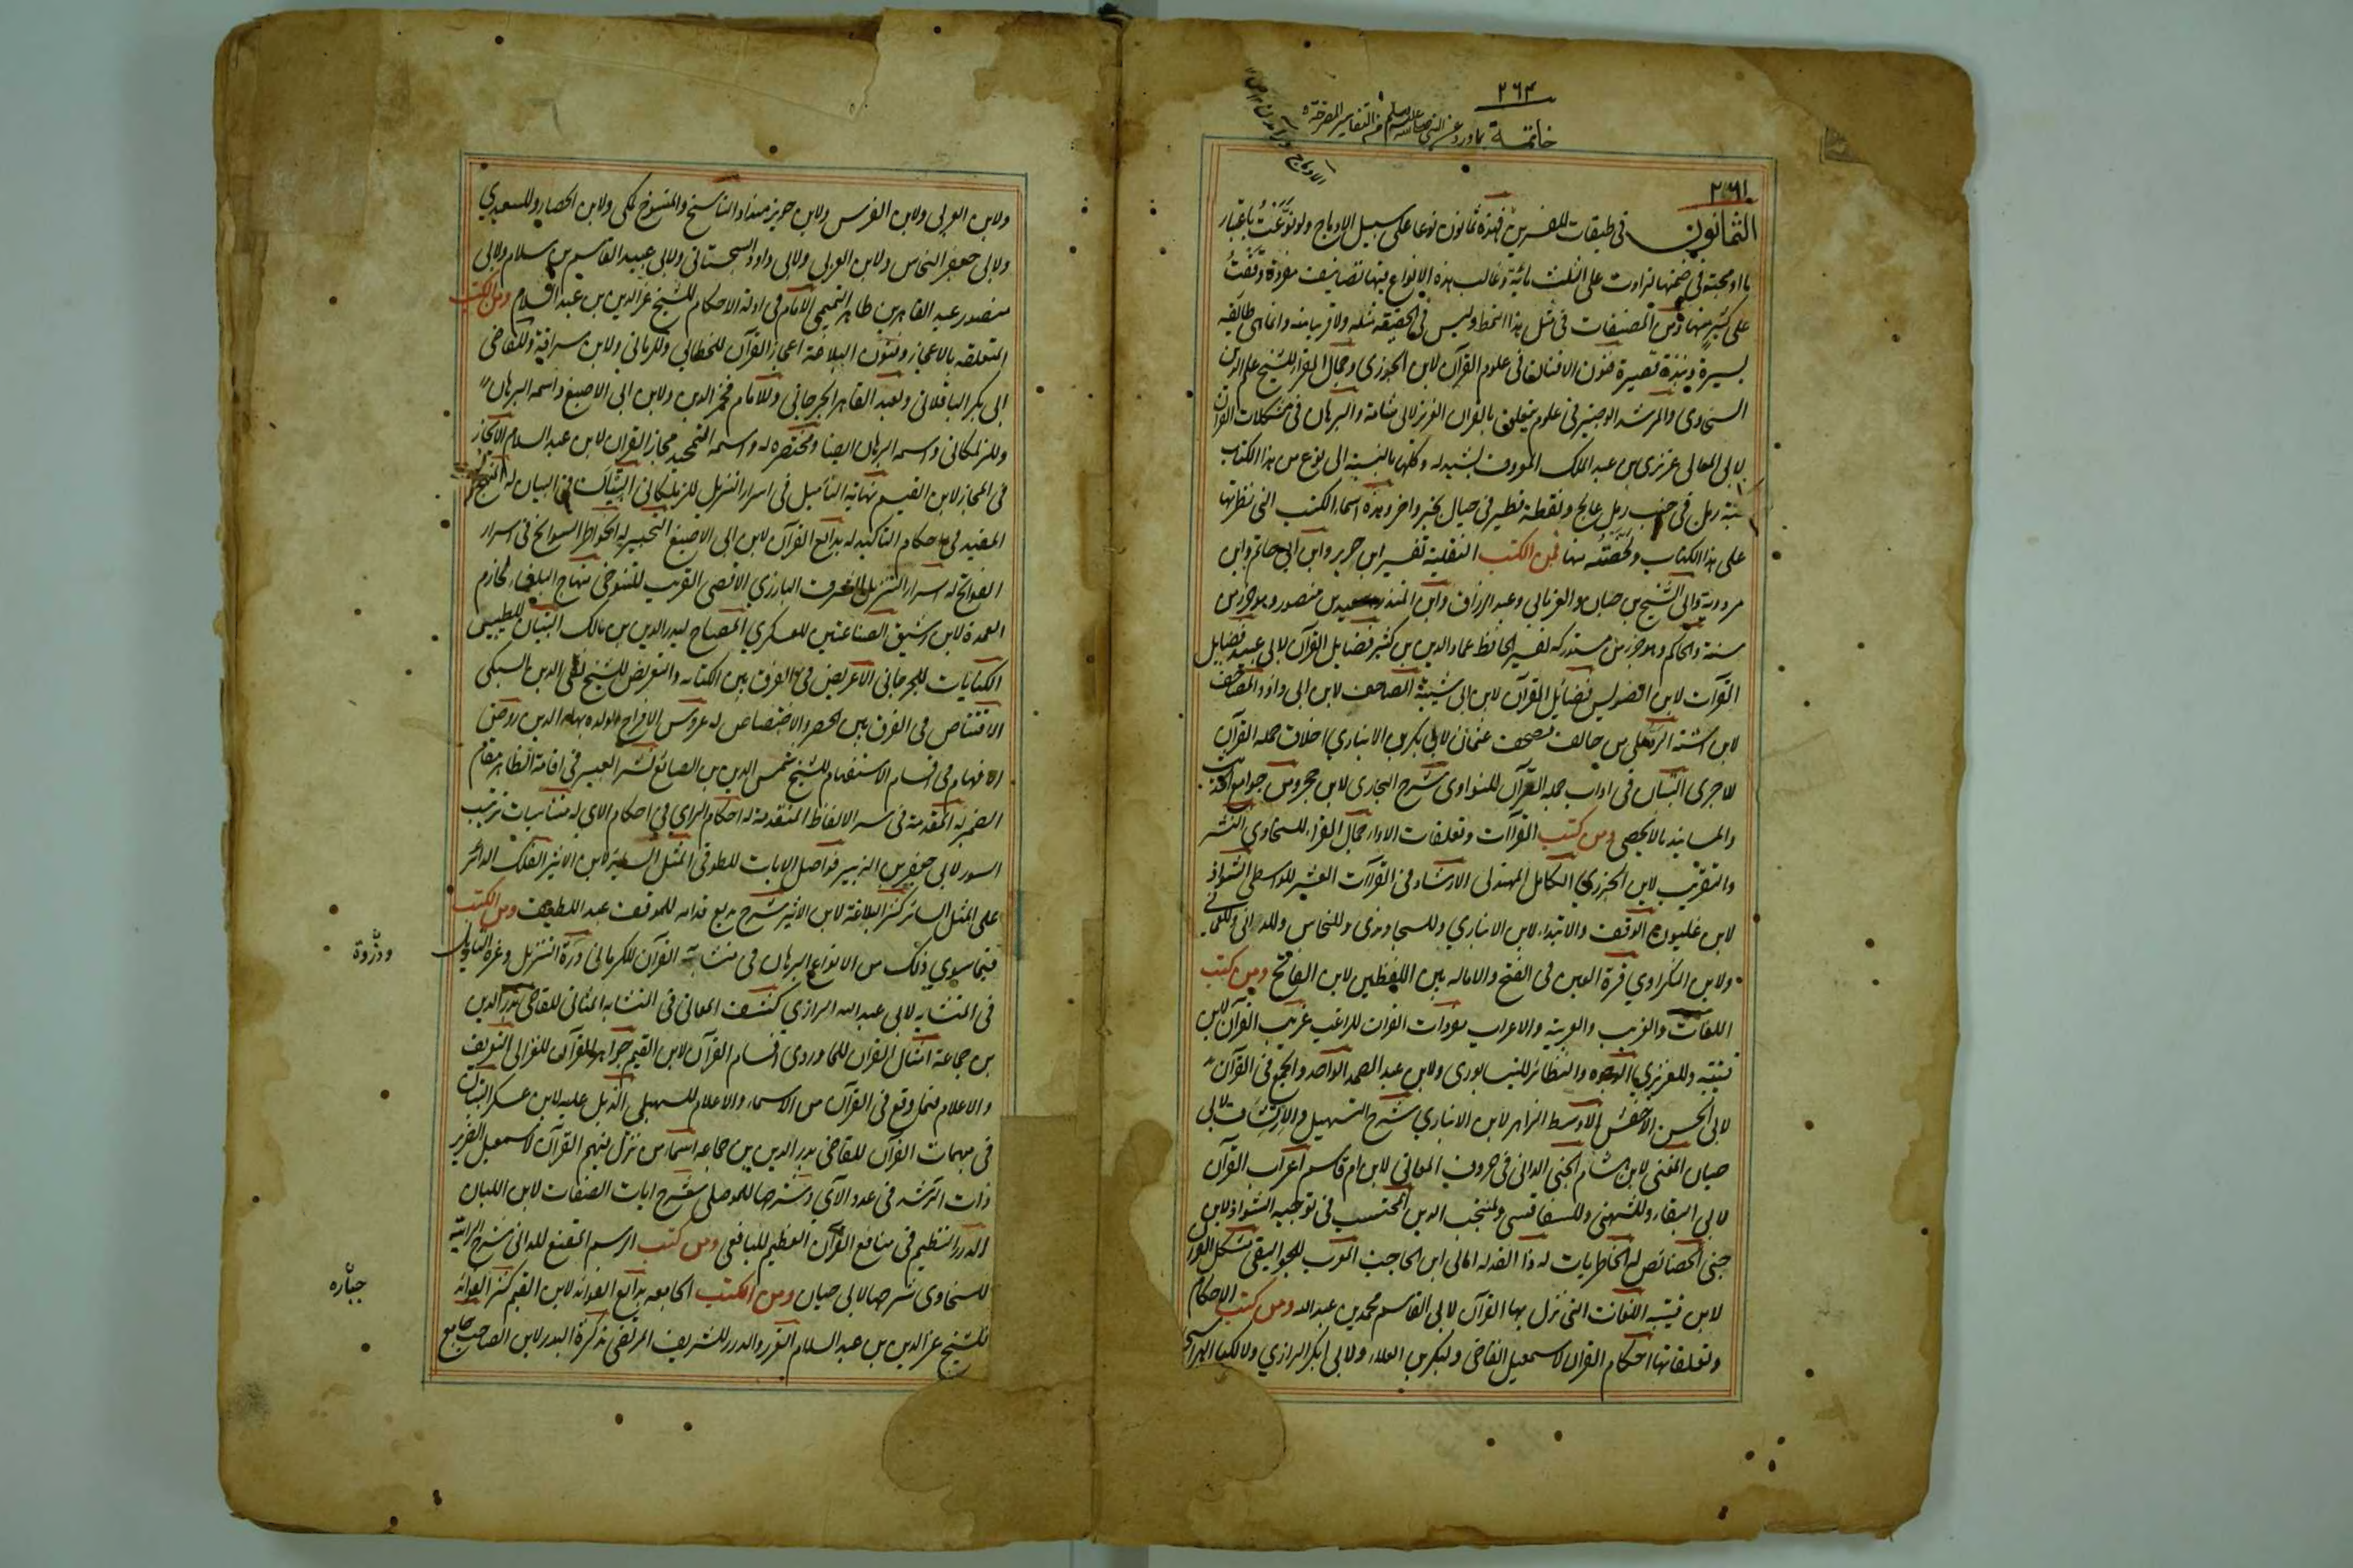 ٢٦٤
خاتمة بما ورد عن النبي صلى الله عليه وسلم من التفاسير المصرحة
٢٦١
الثمانون في طبقات المفسرين فهذه ثمانون نوعا على سبيل الادماج ولو نوعت باعتبار
ما ادمجته في ضمنها لزادت على الثلث مائة وغالب هذه الانواع فيها تصانيف مفردة وقفت
على كثير منها ومن المصنفات في مثل هذا النمط وليس في الحقيقة مثله ولا قريبا منه وانما هي طائفة
يسيرة ونبذة قصيرة فنون الافنان في علوم القرآن لابن الجوزي وجمال القراء للشيخ علم الدين
السخاوي والمرشد الوجيز في علوم تتعلق بالقران العزيز لابي شامة والبرهان في مشكلات القران
لابي المعالي عزيزي بن عبد الملك المعروف بشيدله وكلها بالنسبة الى نوع من هذا الكتاب
حبة رمل في جنب رمل عالج ونقطة قطر في حيال بحر زاخر وهذه اسماء الكتب التي نظرتها
على هذا الكتاب ولخصته منها فمن الكتب النقلية تفسير ابن جرير وابن ابي حاتم وابن
مردوية وابي الشيخ بن حبان والفريابي وعبد الرزاق وابن المنذر وسعيد بن منصور وهو جزء من
سننه والحاكم وهو جزء من مستدركه تفسير الحافظ عماد الدين بن كثير فضايل القرآن لابي عبيد فضايل
القرآن لابن الضريس فضائل القرآن لابن ابي شيبة المصاحف لابن ابي داود المصاحف
لابن اشتة الرد على من خالف مصحف عثمان لابي بكر بن الانباري اخلاق حملة القرآن
للاجري التبيان في اداب حملة القرآن للنواوي شرح البخاري لابن حجر ومن جوامع الحديث
والمسانيد ما لا يحصى ومن كتب القرآات وتعلقات الاداء جمال القراء للسخاوي النشر
والتقريب لابن الجزري الكامل للهذلي الارشاد في القراآت العشر للواسطي الشواذ
لابن غلبون الوقف والابتداء لابن الانباري وللسجاوندي وللنحاس وللداني وللعماني
ولابن النكزاوي قرة العين في الفتح والاماله بين اللفظين لابن القاصح ومن كتب
اللغات والغريب والعربية والاعراب مفردات القران للراغب غريب القرآن لابن
قتيبة وللعزيزي الوجوه والنظائر للنيسابوري ولابن عبد الصمد الواحد والجمع في القرآن
لابي الحسن الاخفش الاوسط الزاهر لابن الانباري شرح التسهيل والارتشاف لابي
حيان المغني لابن هشام الجنى الداني في حروف المعاني لابن ام قاسم اعراب القرآن
لابي البقاء وللسمين وللسفاقسي ولمنتجب الدين المحتسب في توجيه الشواذ لابن
جني الخصائص له الخاطريات له ذا القد له امالي ابن الحاجب المعرب للجواليقي مشكل القران
لابن قتيبه اللغات التي نزل بها القرآن لابي القاسم محمد بن عبد الله ومن كتب الاحكام
وتعلقاتها احكام القران لاسمعيل القاضي ولبكر بن العلاء ولابي بكر الرازي ولالكيا الهراسي
ولابن العربي ولابن الفرس ولابن خويز منداد الناسخ والمنسوخ لمكي ولابن الحصار وللسعيدي
ولابي جعفر النحاس ولابن العربي ولابي داود السجستاني ولابي عبيد القاسم بن سلام ولابي
منصور عبد القاهر بن طاهر التميمي الامام في ادلة الاحكام للشيخ عز الدين بن عبد السلام ومن الكتب
المتعلقه بالاعجاز وفنون البلاغة اعجاز القرآن للخطابي وللرماني ولابن سراقة وللقاضي
ابي بكر الباقلاني ولعبد القاهر الجرجاني وللامام فخر الدين ولابن ابي الاصبع واسمه البرهان
وللزملكاني واسمه البرهان ايضا ومختصره له واسمه المجيد مجاز القران لابن عبد السلام الايجاز
في المجاز لابن القيم نهاية التأميل في اسرار التنزيل للزملكاني التبيان في البيان له المنهج
المفيد في احكام التاكيد له بدائع القرآن لابن ابي الاصبع التحبير له الخواطر السوانح في اسرار
الفواتح له اسرار التنزيل للشرف البارزي الاقصى القريب للتنوخي منهاج البلغاء لحازم
العمدة لابن رشيق الصناعتين للعسكري المصباح لبدر الدين بن مالك التبيان للطيبي
الكنايات للجرجاني الاغريض في الفرق بين الكنايه والتعريض للشيخ تقي الدين السبكي
الاقتناص في الفرق بين الحصر والاختصاص له عروس الافراح لولده بهاء الدين روض
الافهام في اقسام الاستفهام للشيخ شمس الدين بن الصائغ نشر العبير في اقامة الظاهر مقام
الضمير له المقدمة في سر الالفاظ المتقدمة له احكام الراي في احكام الاي له مناسبات ترتيب
السور لابي جعفر بن الزبير فواصل الايات للطوفي المثل السائر لابن الاثير الفلك الدائر
على المثل السائر كنز البلاغة لابن الاثير شرح بديع قدامه للموفق عبد اللطيف ومن الكتب
فيما سوى ذلك من الانواع البرهان في متشابه القرآن للكرماني درة التنزيل وغرة التاويل
ودرّة
في المتشابه لابي عبد الله الرازي كشف المعاني في المتشابه المثاني للقاضي بدر الدين
بن جماعة امثال القران للماوردي اقسام القرآن لابن القيم جواهر القرآن للغزالي التعريف
والاعلام فيما وقع في القرآن من الاسماء والاعلام للسهيلي الذيل عليه لابن عسكر التبيان
في مبهمات القرآن للقاضي بدر الدين بن جماعه اسماء من نزل فيهم القرآن لاسمعيل الضرير
ذات الرشد في عدد الآي وشرحها للموصلي شرح ايات الصفات لابن اللبان
الدر النظيم في منافع القرآن العظيم لليافعي ومن كتب الرسم المقنع للداني شرح الرائية
للسخاوي شرحها لابي حيان ومن الكتب الجامعه بدائع الفوائد لابن القيم كنز الفوائد
جباره
للشيخ عز الدين بن عبد السلام الغرر والدرر للشريف المرتضى تذكرة البدر لابن الصاحب جامع